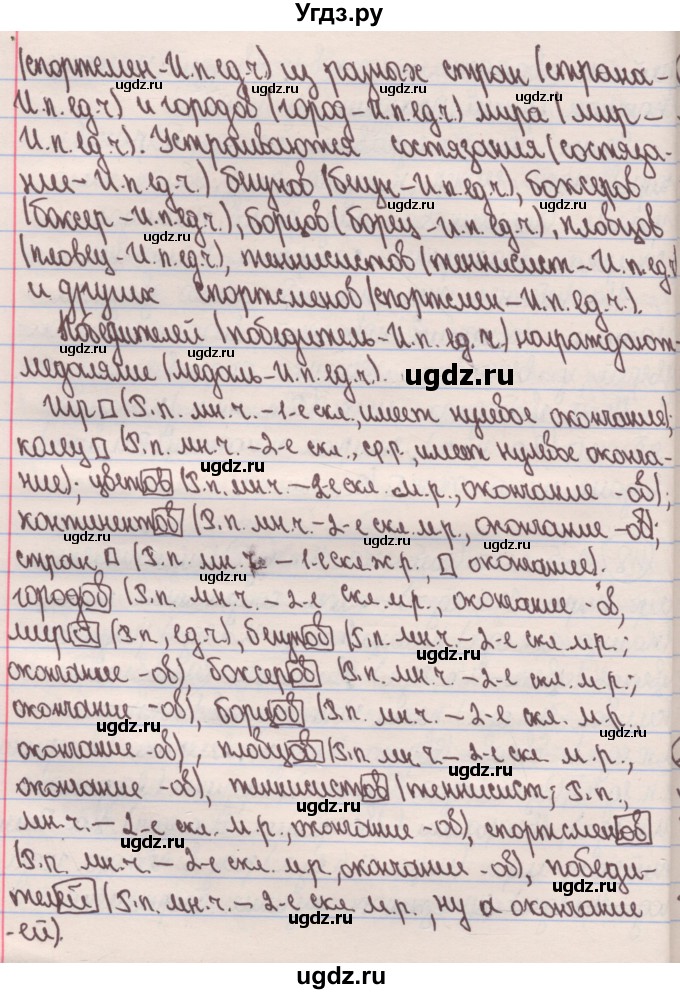 Угдз.ру
(спортсмен-И.п.ед.ч) из разных стран (страна-
И.п.ед.ч) и городов (город-И.п.ед.ч.) мира (мир-
И.п.ед.ч). Устраиваются состязания (состяза-
ние-И.п.ед.ч.) бегунов (бегун-И.п.ед.ч), боксеров
(боксер-И.п.ед.ч.), борцов (борец-И.п.ед.ч), пловцов
(пловец-И.п.ед.ч), теннисистов (теннисист-И.п.ед.ч)
и других спортсменов (спортсмен-И.п.ед.ч).
Победителей (победитель-И.п.ед.ч.) награждают
медалями (медаль-И.п.ед.ч).
Игр (Р.п. мн.ч. -1-е скл., имеет нулевое окончание);
колец (Р.п. мн.ч. -2-е скл., ср.р., имеет нулевое оконча-
ние); цветов (Р.п. мн.ч. -2-е скл. м.р., окончание -ов);
континентов (Р.п. мн.ч. -2-е скл. м.р., окончание -ов);
стран (Р.п. мн.ч. -1-е скл. ж.р., окончание).
городов (Р.п. мн.ч. -2-е скл. м.р., окончание -ов,
мира (Р.п., ед.ч), бегунов (Р.п. мн.ч. -2-е скл. м.р.;
окончание -ов), боксеров (Р.п. мн.ч. -2-е скл. м.р.;
окончание -ов), борцов (Р.п. мн.ч. -2-е скл. м.р.,
окончание -ов), пловцов (Р.п. мн.ч -2-е скл. м.р.,
окончание -ов), теннисистов (теннисист; Р.п.,
мн.ч. -2-е скл. м.р., окончание -ов), спортсменов
(Р.п. мн.ч. -2-е скл. м.р., окончание -ов), победи-
телей (Р.п. мн.ч. -2-е скл. м.р., ну а окончание
-ей).
ugdz.ru